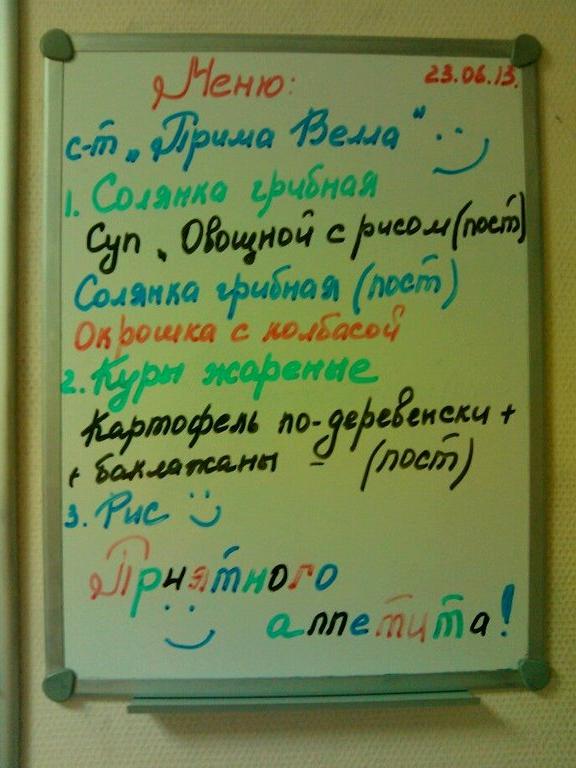 Меню: 23.06.13.
с-т „Прима Велла"
1. Солянка грибная
Суп „Овощной с рисом (пост)
Солянка грибная (пост)
Окрошка с колбасой
2. Куры жареные
Картофель по-деревенски +
+ баклажаны - (пост)
3. Рис
Приятного
аппетита!